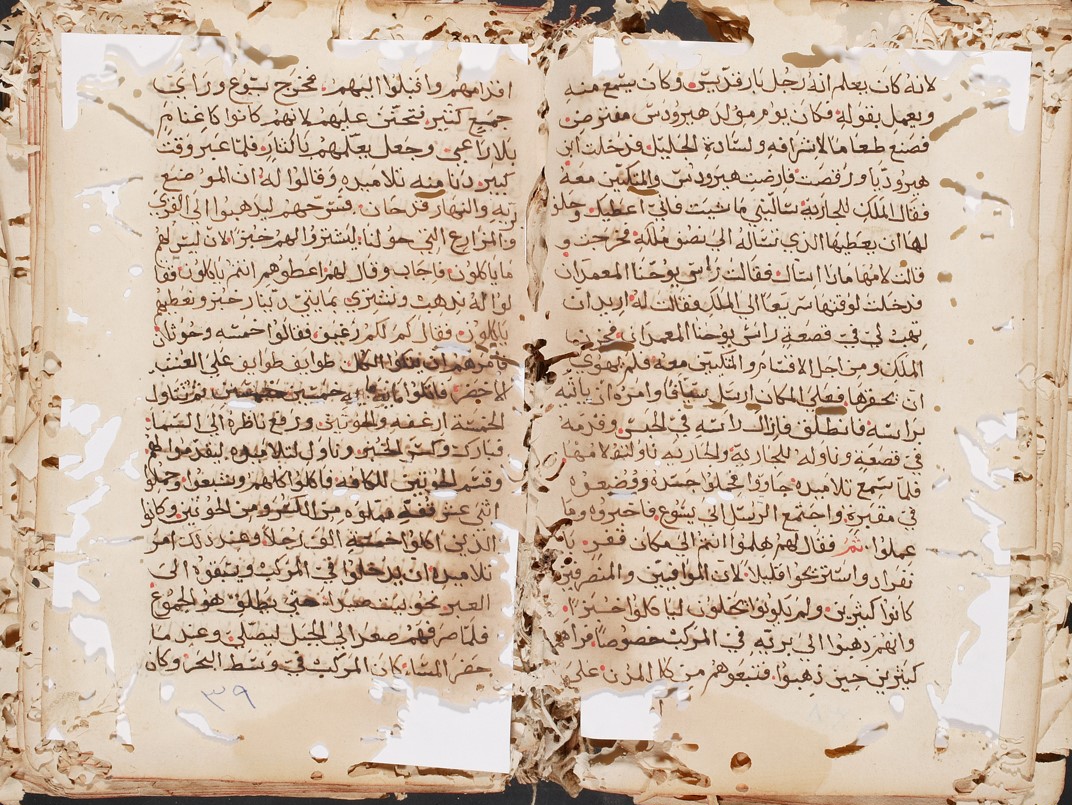 لانه كان يعلم انه رجل بار قديس وكان يسمع منه
ويعمل بقوله وكان يوم مولد هيرودس مفترض
فصنع طعاما لاشرافه ولسادة الجليل فدخلت ابن
هيروديا ورقصت فارضت هيرودس والمتكيين معه
فقال الملك للجارية ساليني ما شيت فاني اعطيك وحلف
لها ان يعطيها الذي تساله الى نصف ملكه فخرجت و
قالت لامها ماذا اسال فقالت راس يوحنا المعمدان
فدخلت لوقتها سريعا الى الملك فقالت له اريد ان
تهب لي في قصعة راس يوحنا المعمدان فحزن
الملك ومن اجل الاقسام والمتكيين معه فلم يهوى
ان يحقرها فعلى المكان ارسل سيافا وامره ان ياتيه
براسه فانطلق فازال راسه في الحبس وقدمه
في قصعه وناوله للجارية والجاريه ناولته لامها
فلما سمع تلاميذه جاووا فحملوا جسده ووضعوه
في مقبرة واجتمع الرسل الى يسوع فاخبروه وما
عملوا ثم فقال لهم هلموا انتم الى مكان قفر
نفراد واستريحوا قليلا لان الموافيين والمنصرفين
كانوا كثيرين ولم يكونوا يخلون ليا كلوا خبزا
وانهم ذهبوا الى بريه في المركب خصوصا فراهم
كثيرين حين ذهبوا فتبعوهم من كل المدن على
اقدامهم واقبلوا اليهم فخرج يسوع وراى
جميع كثير فتحنن عليهم لانهم كانوا كاغنام
بلا راعي وجعل يعلمهم بالنار فلما عبر وقت
كبير دنا منه تلاميذه وقالوا له ان الموضع
بريه والنهار قد حان فسرحهم ليذهبوا الى القرى
والمزارع التي حولنا ليشتروا لهم خبز الان ليس لهم
ما ياكلون فاجاب وقال لهم اعطوهم انتم ياكلون فقا
لوا له نذهب ونشتري بمايتي دينار خبز ونعطيهم
ياكلون فقال كم لكم رغيف فقالوا خمسه وحوتان
فامرهم ان طوايف طوايف على العشب
لاخضر فاتكوا ثم تناول
الخمسه ارغفه والحوتين ورفع ناظره الى السما
فبارك وكسر الخبز وناول لتلاميذه ليقدموا لهم
وقسم الحوتين للكافه فاكلوا كلهم وشبعوا وحملوا
اثنى عشر قفه مملوه من الكسر ومن الحوتين وكانوا
الذين اكلوا خمسة الف رجلا وعند ذلك امر
تلاميذه ان يدخلوا في المركب ويسبقوه الى
العبر نحو بيت صيدا حتى يطلق هو الجموع
فلما صرفهم صعد الى الجبل ليصلي وعند ما
حضر المسا كان المركب في وسط البحر وكان
٣٩